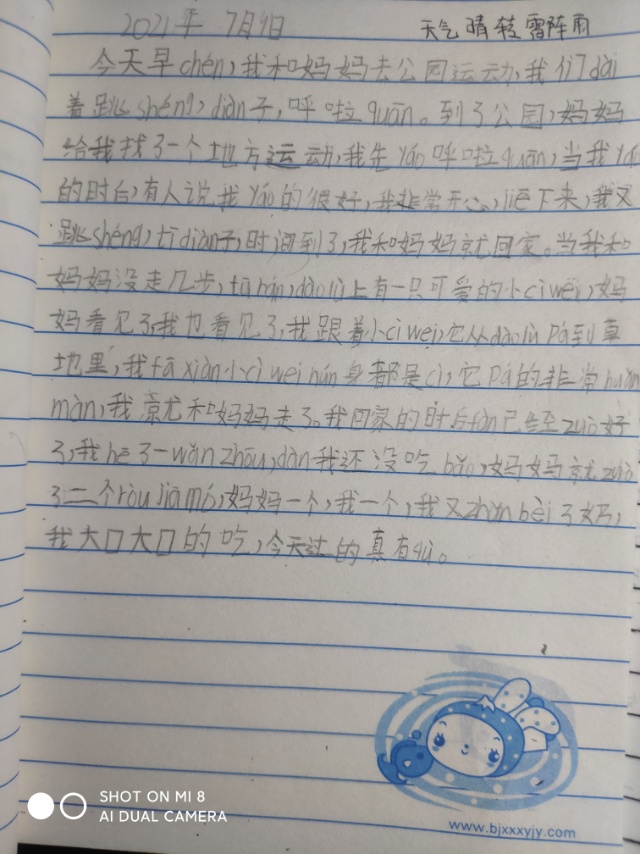 2021年 7月1日 天气晴转雷阵雨
今天早chén,我和妈妈去公园运动,我们dài
着跳shéng,diàn子,呼啦quān。到了公园,妈妈
给我找了一个地方运动,我先yáo呼啦quān,当我yáo
的时后,有人说我yáo的很好,我非常开心,jiē下来,我又
跳shéng,tī diàn子,时间到了,我和妈妈就回家。当我和
妈妈没走几步,tū rán,dào lù上有一只可爱的小cì wei,妈
妈看见了,我也看见了,我跟着小cì wei,它从dào lù pá到草
地里,我fā xiàn小cì wei hún身都是cì,它pá的非常huǎn
màn,我就和妈妈走了。我回家的时后fàn已经zuò好
了,我hē了一wǎn zhōu,dàn我还没吃bǎo,妈妈就zuò
了二个ròu jiā mó,妈妈一个,我一个,我又zhǔn bèi了奶,
我大口大口的吃,今天过的真有qù。
SHOT ON MI 8
AI DUAL CAMERA
www.bjxxxyjy.com